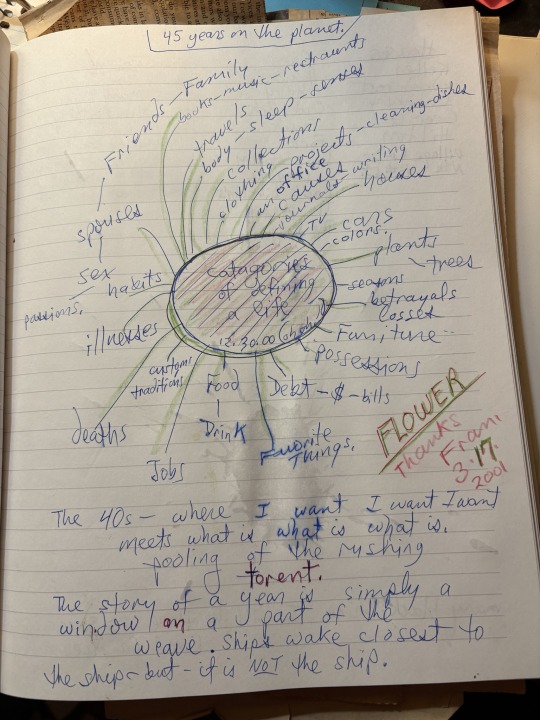 45 years on the planet.
Friends - Family
books - music - restraunts
travels
body - sleep - senses
collections
clothing projects - cleaning - dishes
office
causes
journals - writing
houses
TV
cars
colors.
plants
trees
seasons
betrayals
losses
Furniture
Possessions
Debt - $ - bills
Favorite
Things.
Food
Drink
Jobs
customs
traditions
deaths
illnesses
habits
passions.
sex
spouses
catagories
of defining
a life
12.30.00
FLOWER
Thanks
Fran
3.17.
2001
The 40s - where I want I want I want
meets what is what is what is.
pooling of the rushing
torent.
The story of a year is simply a
window on a part of the
weave. Ships wake closest to
the ship - but - it is NOT the ship.